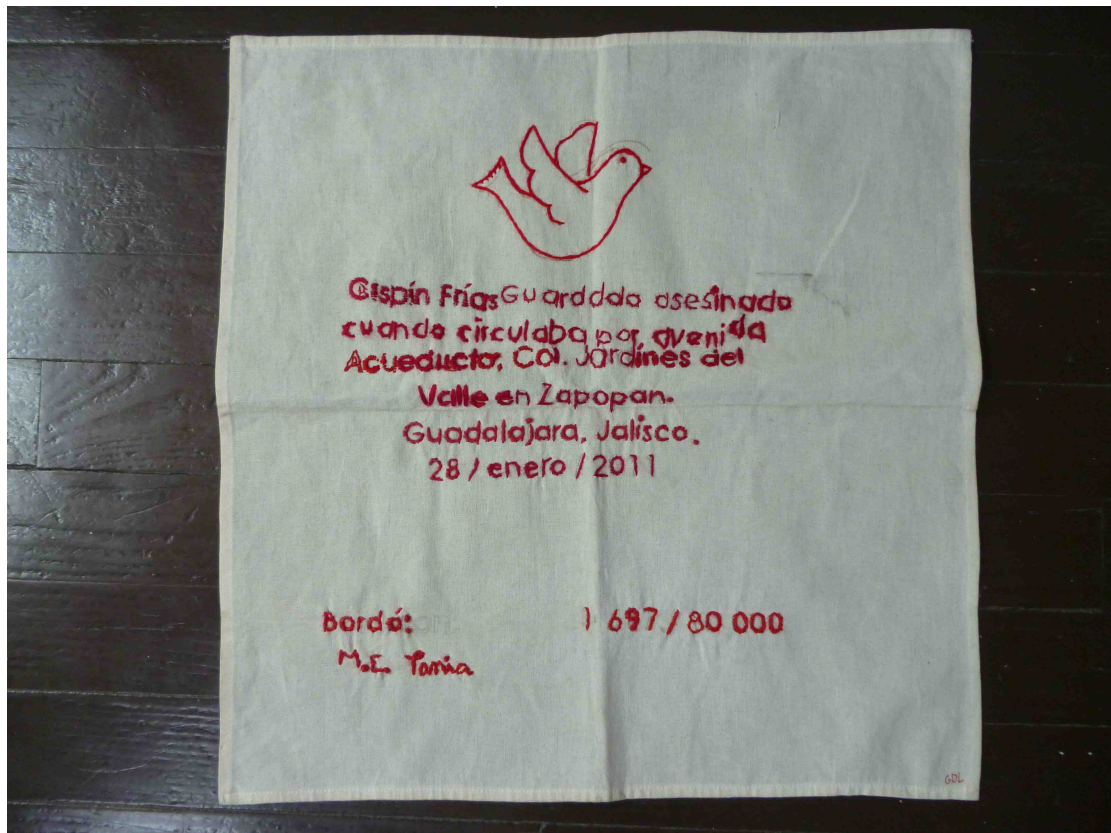 Cispín Frías Guarddda asesinado
cuando circulaba por, avenida
Acueducto, Col. Jardines del
Valle en Zapopan.
Guadalajara, Jalisco.
28 / enero / 2011
Bordó:
1 697 / 80 000
M.E. Tania
GDL